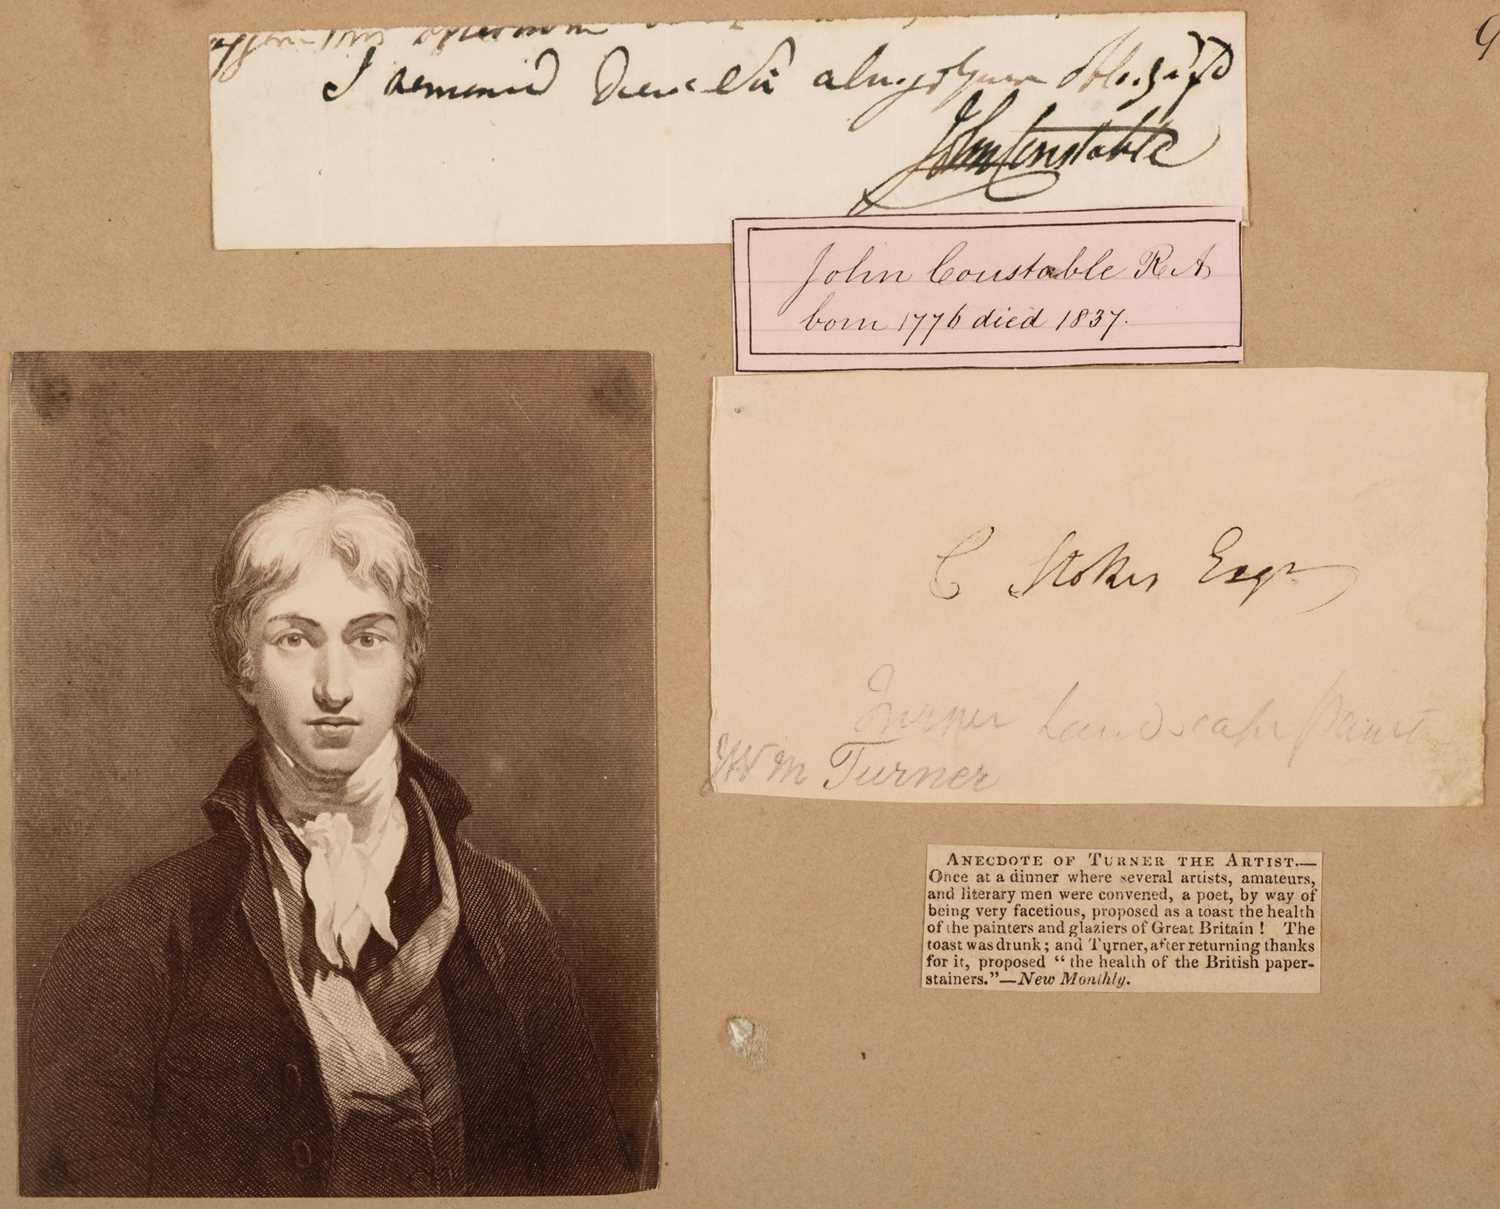 I remain Dear Sir always your Obliged
John Constable
John Constable R.A.
born 1776 died 1837.
C Stokes Esqr
Turner Landscape Paint
Wm Turner
ANECDOTE OF TURNER THE ARTIST.—
Once at a dinner where several artists, amateurs,
and literary men were convened, a poet, by way of
being very facetious, proposed as a toast the health
of the painters and glaziers of Great Britain! The
toast was drunk; and Turner, after returning thanks
for it, proposed "the health of the British paper-
stainers."—New Monthly.